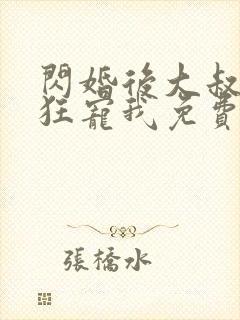 閃婚後大叔
狂寵我免費
張橋水